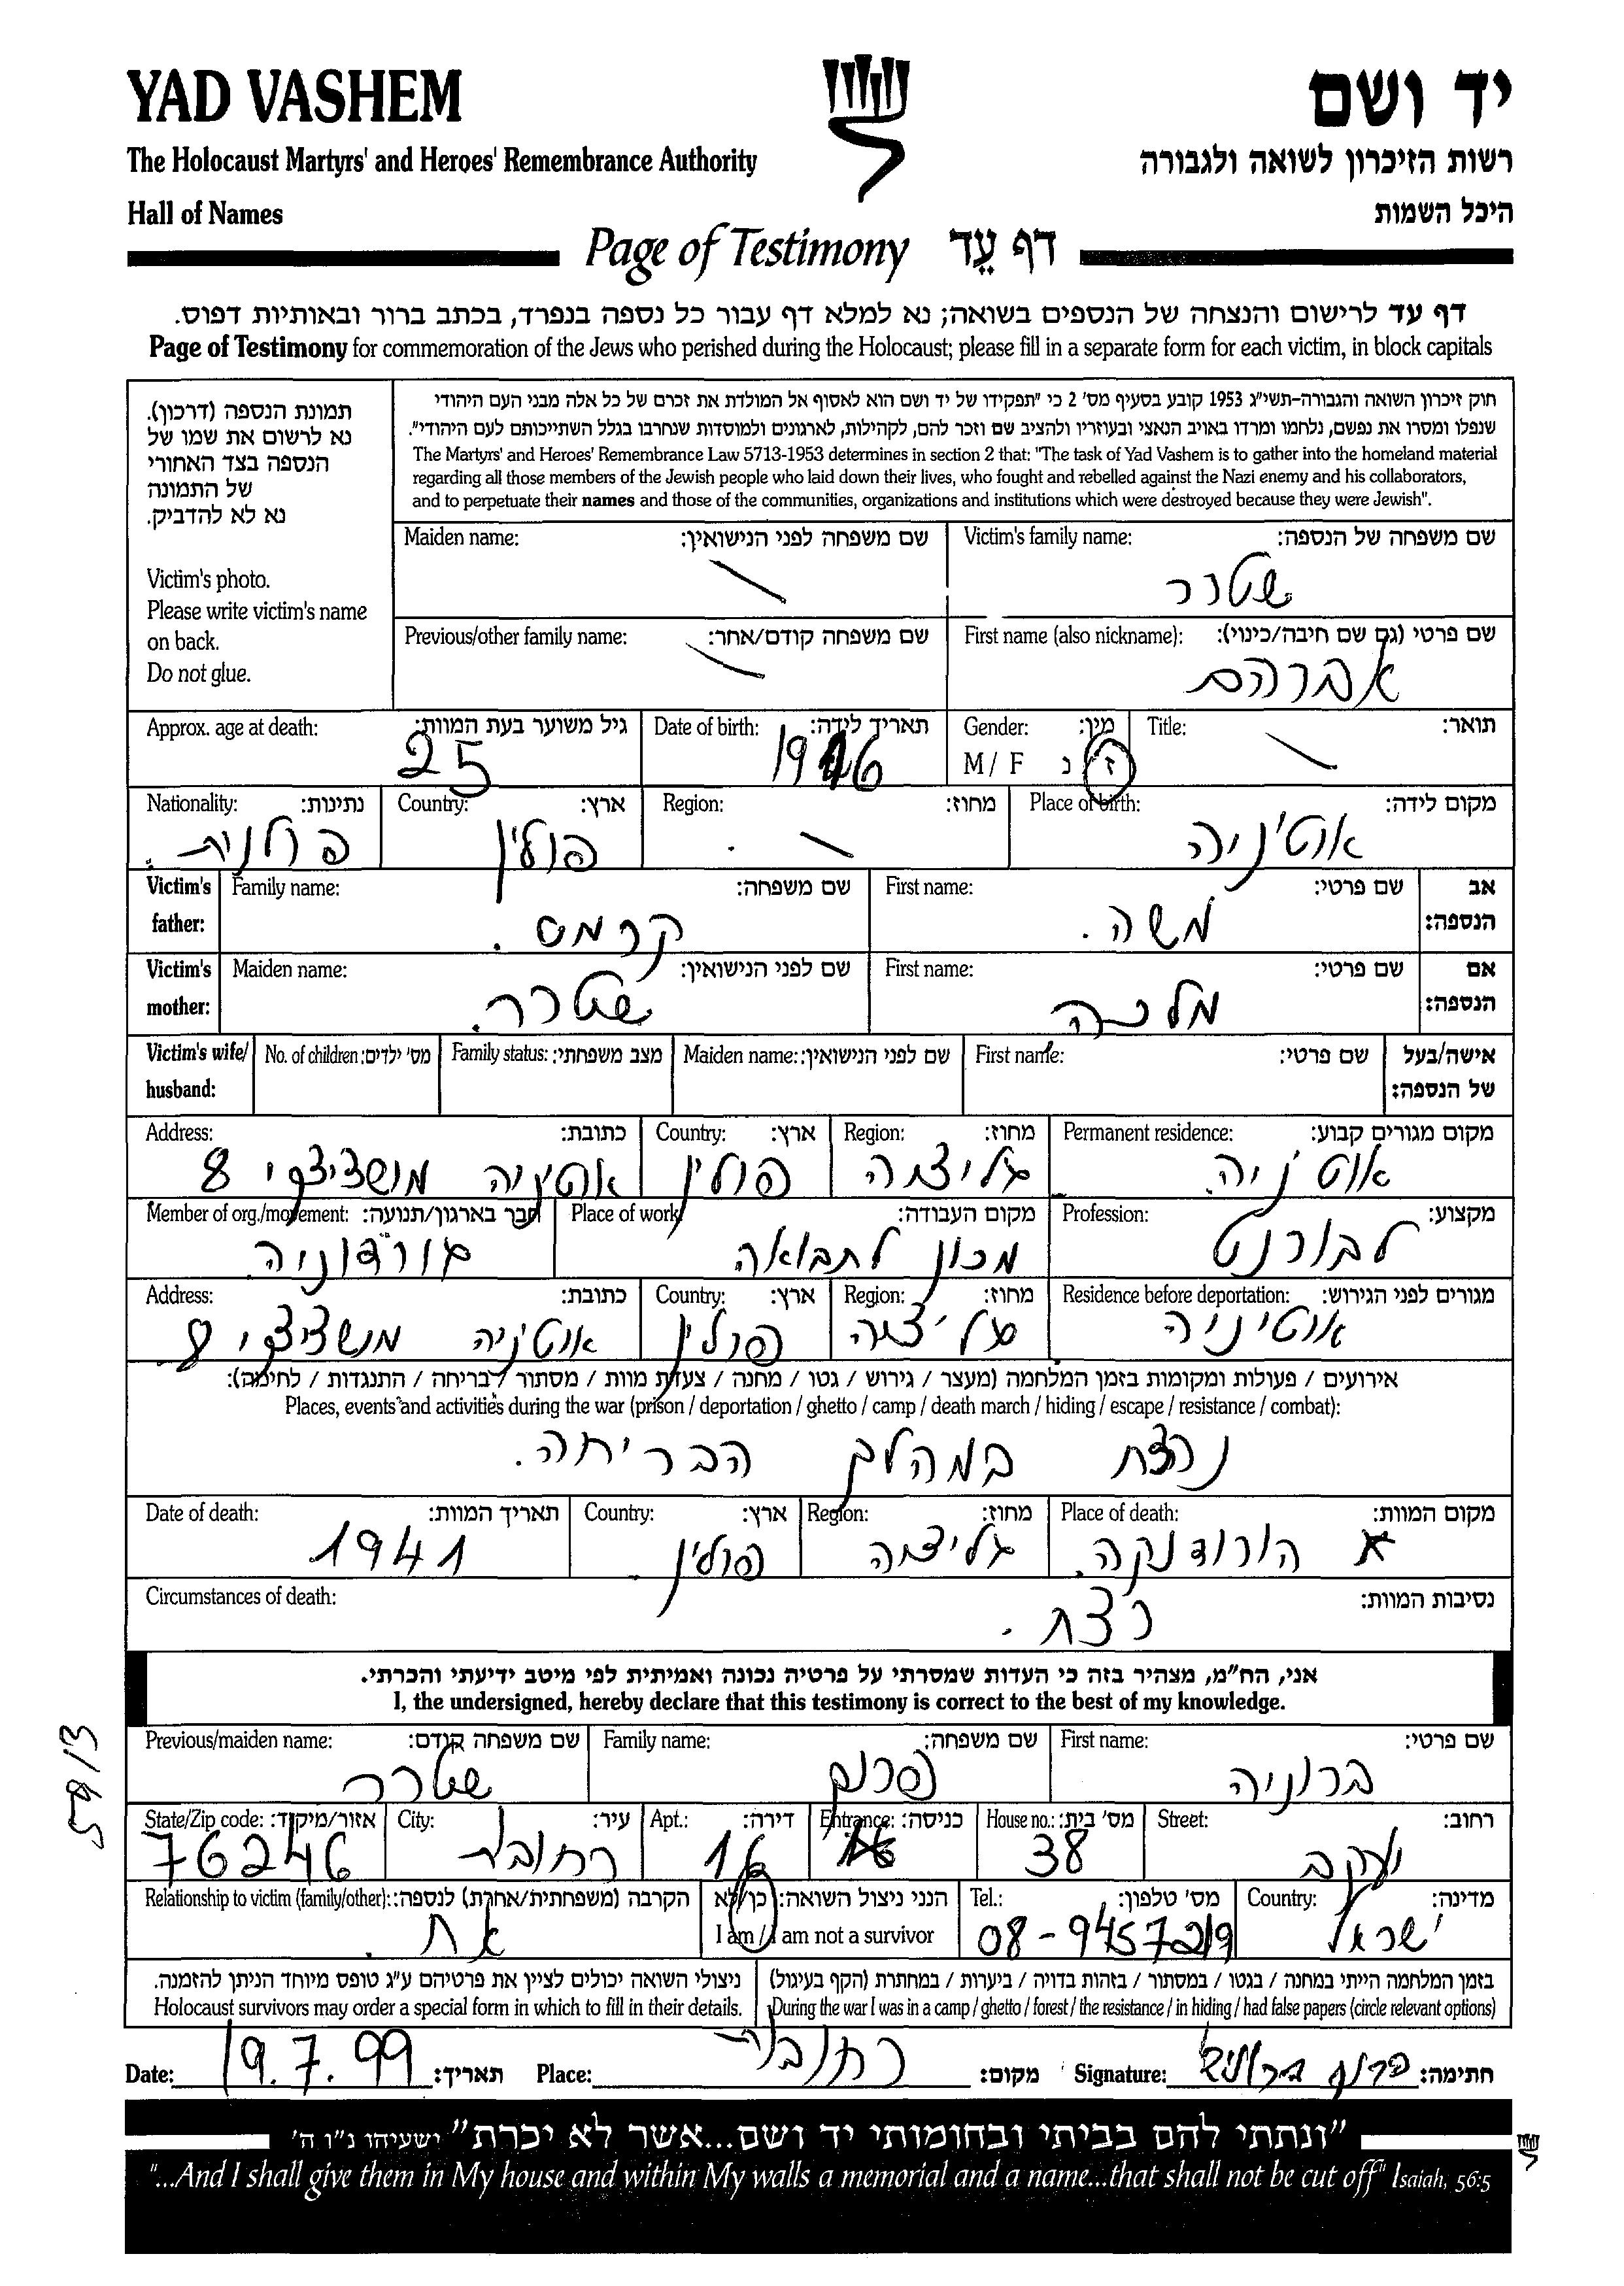 YAD VASHEM
יד ושם
The Holocaust Martyrs' and Heroes' Remembrance Authority
רשות הזיכרון לשואה ולגבורה
Hall of Names
היכל השמות
Page of Testimony דף עֵד
דף עד לרישום והנצחה של הנספים בשואה; נא למלא דף עבור כל נספה בנפרד, בכתב ברור ובאותיות דפוס.
Page of Testimony for commemoration of the Jews who perished during the Holocaust; please fill in a separate form for each victim, in block capitals
תמונת הנספה (דרכון).
נא לרשום את שמו של
הנספה בצד האחורי
של התמונה
נא לא להדביק.
Victim's photo.
Please write victim's name
on back.
Do not glue.
חוק זיכרון השואה והגבורה-תשי"ג 1953 קובע בסעיף מס' 2 כי "תפקידו של יד ושם הוא לאסוף אל המולדת את זכרם של כל אלה מבני העם היהודי
שנפלו ומסרו את נפשם, נלחמו ומרדו באויב הנאצי ובעוזריו ולהציב שם וזכר להם, לקהילות, לארגונים ולמוסדות שנחרבו בגלל השתייכותם לעם היהודי".
The Martyrs' and Heroes' Remembrance Law 5713-1953 determines in section 2 that: "The task of Yad Vashem is to gather into the homeland material
regarding all those members of the Jewish people who laid down their lives, who fought and rebelled against the Nazi enemy and his collaborators,
and to perpetuate their names and those of the communities, organizations and institutions which were destroyed because they were Jewish".
Victim's family name: שם משפחה של הנספה:
שטרר
Maiden name: שם משפחה לפני הנישואין:
First name (also nickname): שם פרטי (גם שם חיבה/כינוי):
אברהם
Previous/other family name: שם משפחה קודם/אחר:
Title: תואר:
Gender: מין:
M / F ז נ
Date of birth: תאריך לידה:
1916
Approx. age at death: גיל משוער בעת המוות:
25
Place of birth: מקום לידה:
אוטיניה
Region: מחוז:
Country: ארץ:
פולין
Nationality: נתינות:
פולנית
Victim's father: אב הנספה:
First name: שם פרטי:
משה.
Family name: שם משפחה:
קרמס.
Victim's mother: אם הנספה:
First name: שם פרטי:
מלכה
Maiden name: שם לפני הנישואין:
שטרר.
Victim's wife/ husband: אישה/בעל של הנספה:
First name: שם פרטי:
Maiden name: שם לפני הנישואין:
Family status: מצב משפחתי:
No. of children: מס' ילדים:
Permanent residence: מקום מגורים קבוע:
אוטיניה
Region: מחוז:
גליציה
Country: ארץ:
פולין
Address: כתובת:
אוטיניה 8
Profession: מקצוע:
לבורנט
Place of work: מקום העבודה:
מכון לתבואה
Member of org./movement: חבר בארגון/תנועה:
גורדוניה
Residence before deportation: מגורים לפני הגירוש:
אוטיניה
Region: מחוז:
גליציה
Country: ארץ:
פולין
Address: כתובת:
אוטיניה 8
אירועים / פעולות ומקומות בזמן המלחמה (מעצר / גירוש / גטו / מחנה / צעדת מוות / מסתור / בריחה / התנגדות / לחימה):
Places, events and activities during the war (prison / deportation / ghetto / camp / death march / hiding / escape / resistance / combat):
נרצח במהלך הבריחה.
Place of death: מקום המוות:
הורודנקה
Region: מחוז:
גליציה
Country: ארץ:
פולין
Date of death: תאריך המוות:
1941
Circumstances of death: נסיבות המוות:
רצח.
אני, הח"מ, מצהיר בזה כי העדות שמסרתי על פרטיה נכונה ואמיתית לפי מיטב ידיעתי והכרתי.
I, the undersigned, hereby declare that this testimony is correct to the best of my knowledge.
First name: שם פרטי:
ברוניה
Family name: שם משפחה:
פרום
Previous/maiden name: שם משפחה קודם:
שטרר
59/3
Street: רחוב:
יעקב
House no.: מס' בית:
38
Entrance: כניסה:
Apt.: דירה:
16
City: עיר:
רחובות
State/Zip code: אזור/מיקוד:
76246
Country: מדינה:
ישראל
Tel.: מס' טלפון:
08-9457219
הנני ניצול השואה: כן/לא
I am / I am not a survivor
Relationship to victim (family/other): הקרבה (משפחתית/אחרת) לנספה:
אח.
בזמן המלחמה הייתי במחנה / בגטו / במסתור / בזהות בדויה / ביערות / במחתרת (הקף בעיגול)
During the war I was in a camp / ghetto / forest / the resistance / in hiding / had false papers (circle relevant options)
ניצולי השואה יכולים לציין את פרטיהם ע"ג טופס מיוחד הניתן להזמנה.
Holocaust survivors may order a special form in which to fill in their details.
Date: 19.7.99 תאריך: Place: רחובות מקום: Signature: ברוניה חתימה:
"ונתתי להם בביתי ובחומותי יד ושם...אשר לא יכרת" ישעיהו נ"ו ה'
"...And I shall give them in My house and within My walls a memorial and a name...that shall not be cut off" Isaiah, 56:5